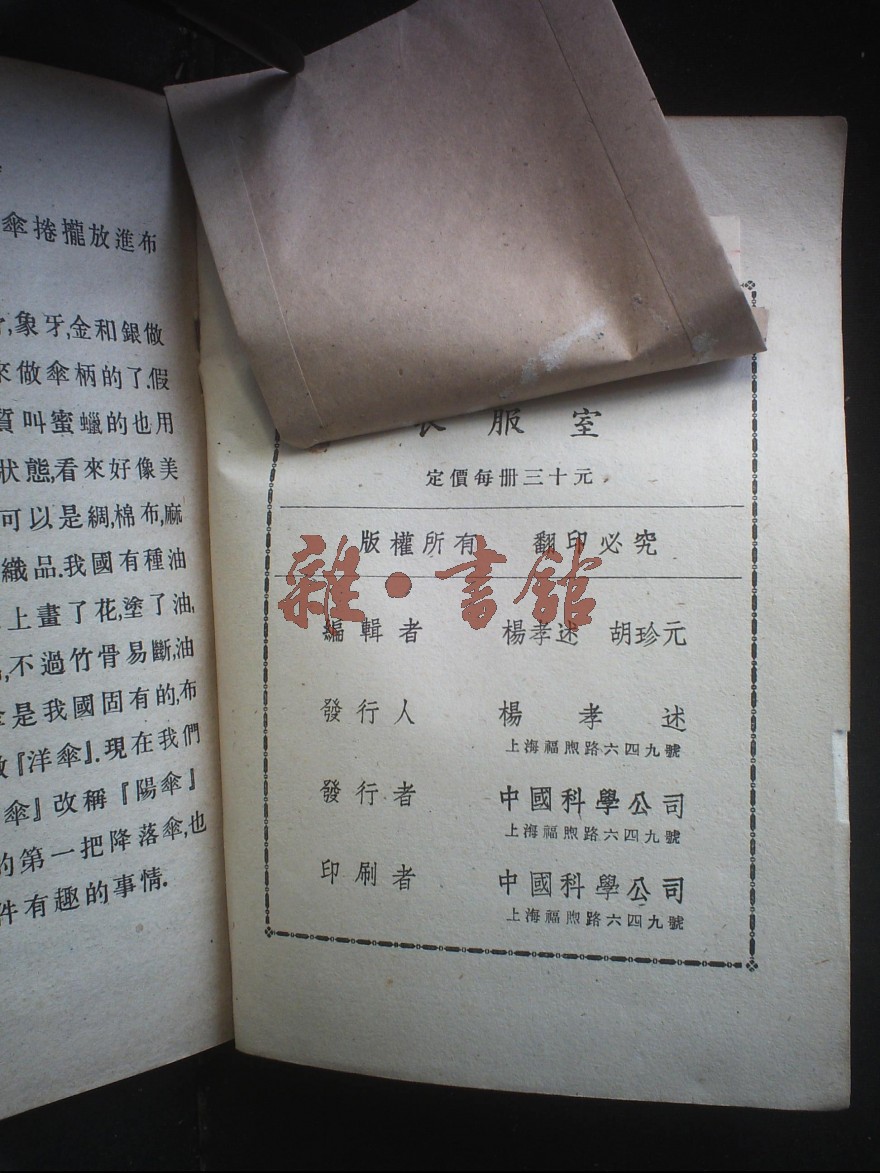 傘捲攏放進布
,象牙,金和銀做
來做傘柄的了.假
質叫蜜蠟的也用
狀態,看來好像美
可以是綢,棉布,麻
織品.我國有種油
上畫了花,塗了油,
,不過竹骨易斷,油
是我國固有的,布
『洋傘』.現在我們
傘』改稱『陽傘』
的第一把降落傘,也
件有趣的事情.
服室
定價每册三十元
版權所有 翻印必究
雜·書館
編輯者 楊孝述 胡珍元
發行人 楊孝述
上海福煦路六四九號
發行者 中國科學公司
上海福煦路六四九號
印刷者 中國科學公司
上海福煦路六四九號